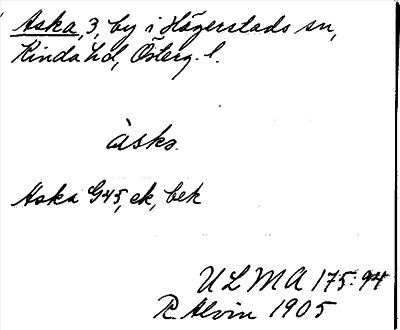 Aska, 3, by i Hägerstads sn,
Kinda hd, Österg. l.
àska.
Aska G45, ek, bek
ULMA 175:94
R. Alvin 1905